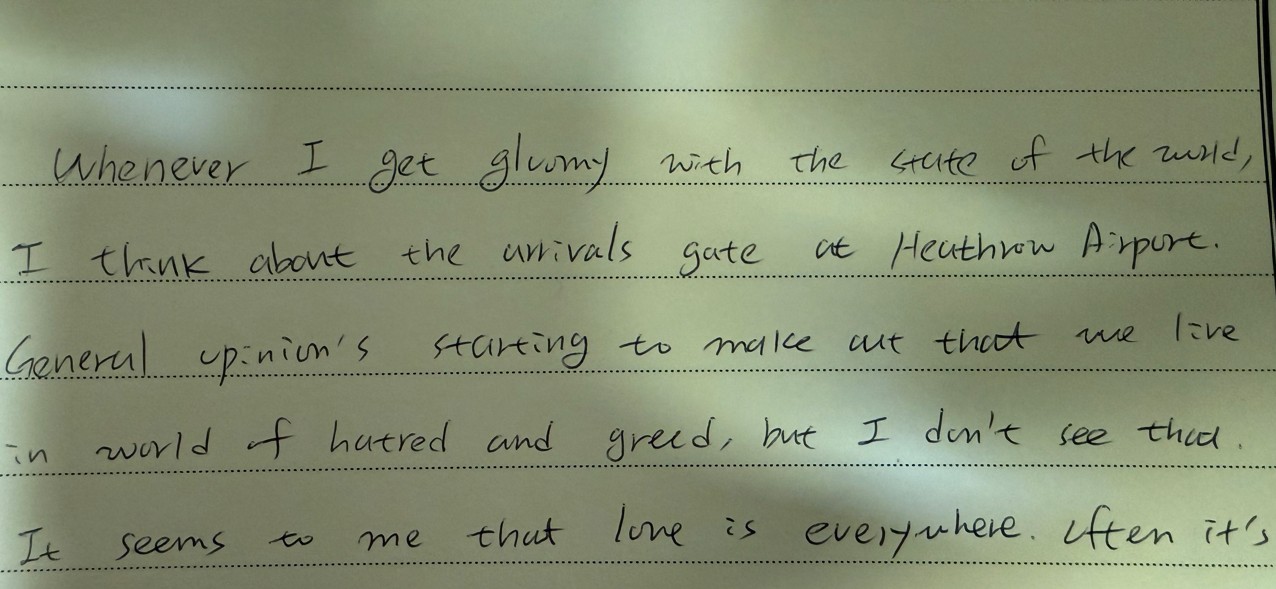 Whenever I get gloomy with the state of the world,
I think about the arrivals gate at Heathrow Airport.
General opinion's starting to make out that we live
in world of hatred and greed, but I don't see that.
It seems to me that love is everywhere. Often it's